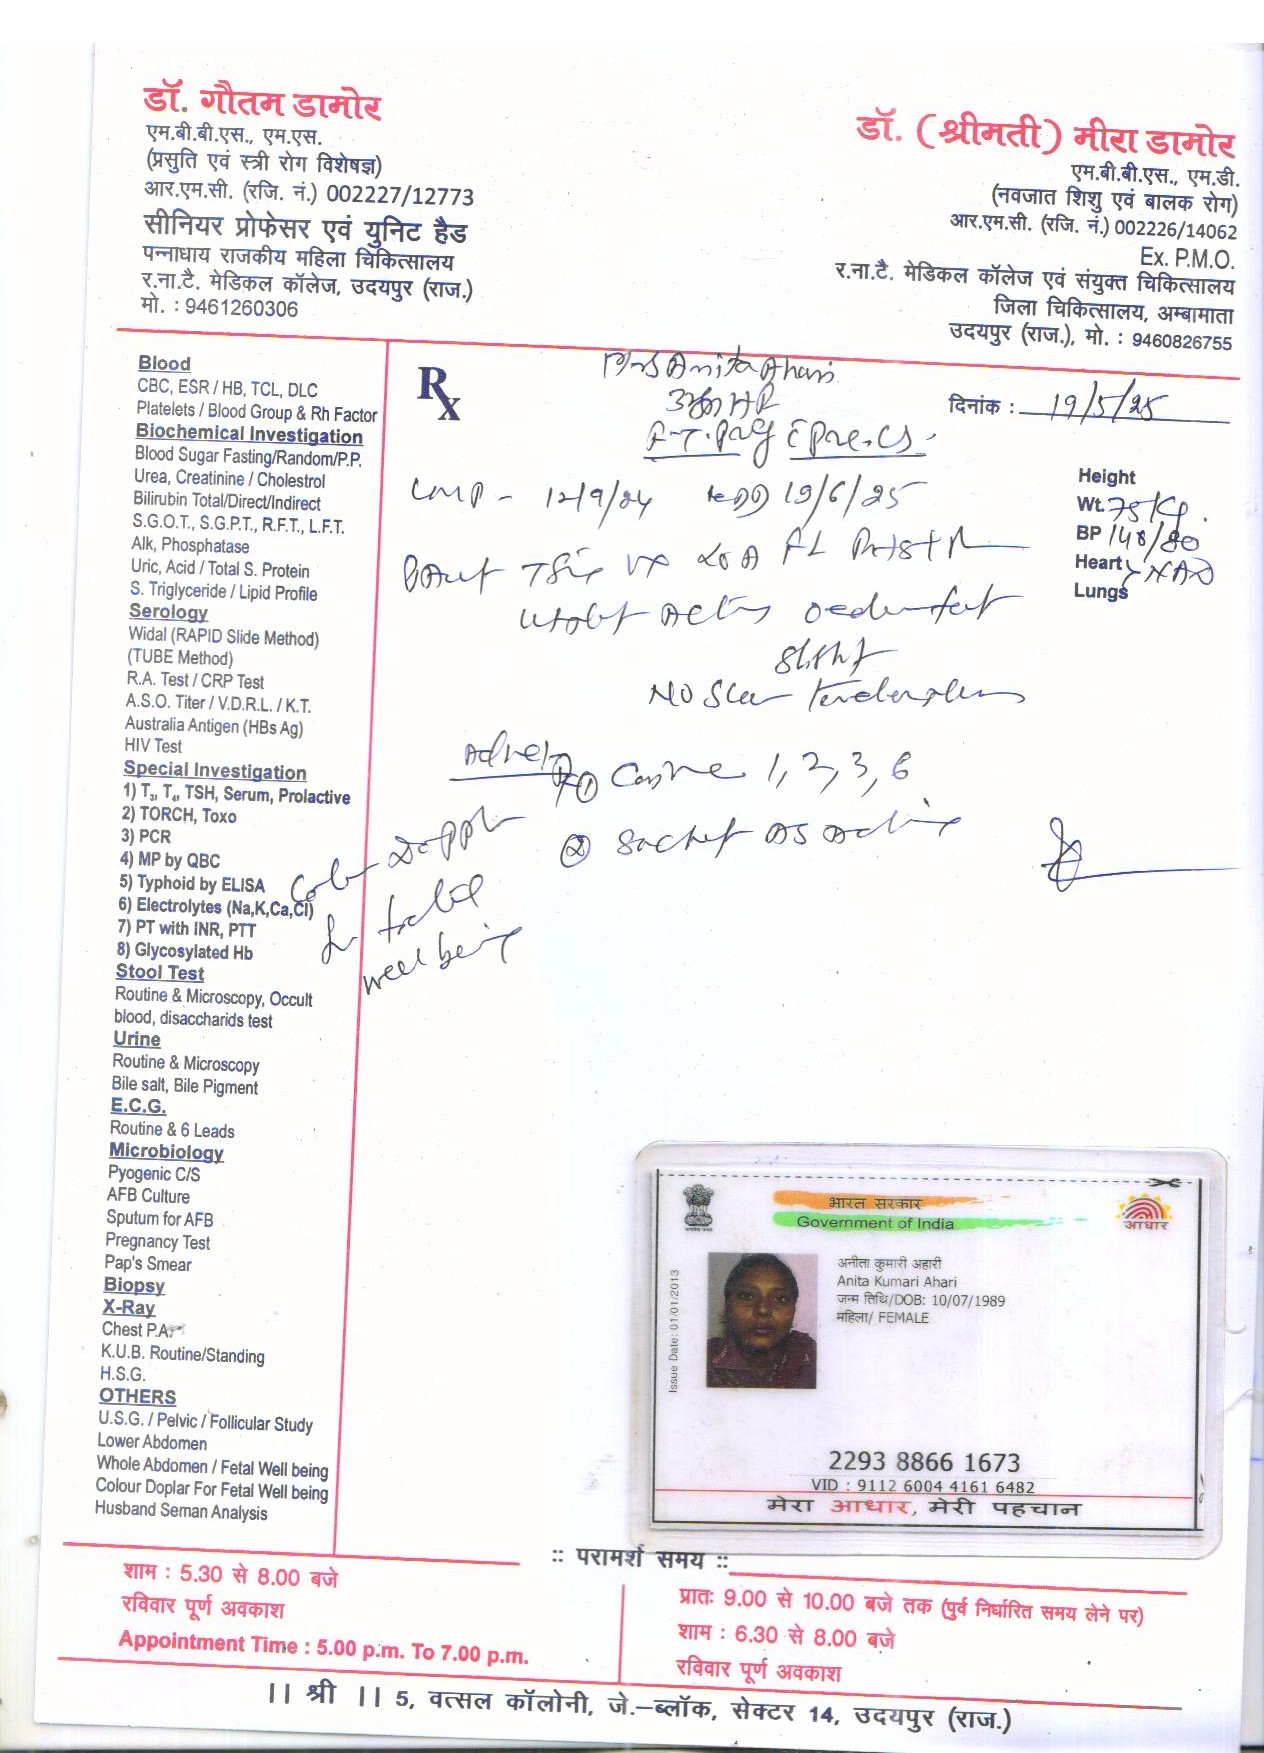 डॉ. गौतम डामोर
एम.बी.बी.एस., एम.एस.
(प्रसुति एवं स्त्री रोग विशेषज्ञ)
आर.एम.सी. (रजि. नं.) 002227/12773
सीनियर प्रोफेसर एवं युनिट हैड
पन्नाधाय राजकीय महिला चिकित्सालय
र.ना.टै. मेडिकल कॉलेज, उदयपुर (राज.)
मो. : 9461260306
डॉ. (श्रीमती) मीरा डामोर
एम.बी.बी.एस., एम.डी.
(नवजात शिशु एवं बालक रोग)
आर.एम.सी. (रजि. नं.) 002226/14062
Ex. P.M.O.
र.ना.टै. मेडिकल कॉलेज एवं संयुक्त चिकित्सालय
जिला चिकित्सालय, अम्बामाता
उदयपुर (राज.), मो. : 9460826755
Blood
CBC, ESR / HB, TCL, DLC
Platelets / Blood Group & Rh Factor
Biochemical Investigation
Blood Sugar Fasting/Random/P.P.
Urea, Creatinine / Cholestrol
Bilirubin Total/Direct/Indirect
S.G.O.T., S.G.P.T., R.F.T., L.F.T.
Alk, Phosphatase
Uric, Acid / Total S. Protein
S. Triglyceride / Lipid Profile
Serology
Widal (RAPID Slide Method)
(TUBE Method)
R.A. Test / CRP Test
A.S.O. Titer / V.D.R.L. / K.T.
Australia Antigen (HBs Ag)
HIV Test
Special Investigation
1) T3, T4, TSH, Serum, Prolactive
2) TORCH, Toxo
3) PCR
4) MP by QBC
5) Typhoid by ELISA
6) Electrolytes (Na,K,Ca,Cl)
7) PT with INR, PTT
8) Glycosylated Hb
Stool Test
Routine & Microscopy, Occult
blood, disaccharids test
Urine
Routine & Microscopy
Bile salt, Bile Pigment
E.C.G.
Routine & 6 Leads
Microbiology
Pyogenic C/S
AFB Culture
Sputum for AFB
Pregnancy Test
Pap's Smear
Biopsy
X-Ray
Chest P.A.
K.U.B. Routine/Standing
H.S.G.
OTHERS
U.S.G. / Pelvic / Follicular Study
Lower Abdomen
Whole Abdomen / Fetal Well being
Colour Doplar For Fetal Well being
Husband Seman Analysis
Rx
Mrs Anita Ahari
दिनांक : 19/5/25
LMP - 12/9/24 EDD 19/6/25
Height
Wt. 75 Kg.
BP 148/80
Heart NAD
Lungs
slight
No Scar tenderness
Advice
① 1, 2, 3, 6
② Sachet
Color Doppler
for foetal
well being
भारत सरकार
Government of India
आधार
Issue Date: 01/01/2013
अनीता कुमारी अहारी
Anita Kumari Ahari
जन्म तिथि/DOB: 10/07/1989
महिला/ FEMALE
2293 8866 1673
VID : 9112 6004 4161 6482
मेरा आधार, मेरी पहचान
:: परामर्श समय ::
शाम : 5.30 से 8.00 बजे
रविवार पूर्ण अवकाश
Appointment Time : 5.00 p.m. To 7.00 p.m.
प्रातः 9.00 से 10.00 बजे तक (पुर्व निर्धारित समय लेने पर)
शाम : 6.30 से 8.00 बजे
रविवार पूर्ण अवकाश
|| श्री || 5, वत्सल कॉलोनी, जे.-ब्लॉक, सेक्टर 14, उदयपुर (राज.)